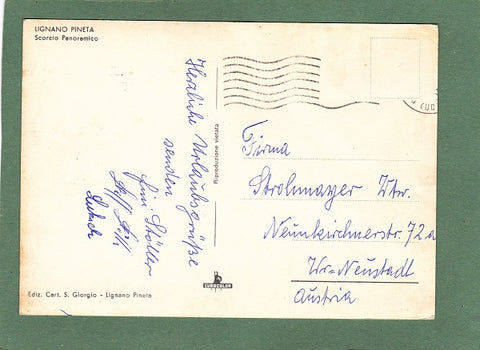 LIGNANO PINETA
Scorcio Panoramico
Herzliche Urlaubsgrüße
senden
Riproduzione vietata
Firma
Strohmayer Wtw.
Neunkirchnerstr. 72a
Wr.-Neustadt
Austria
Ediz. Cart. S. Giorgio - Lignano Pineta